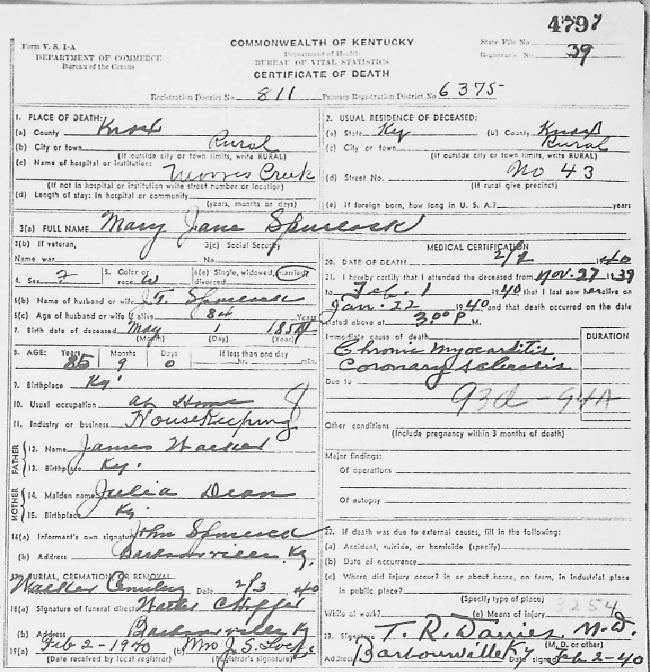 4797
Form V. S. 1-A
DEPARTMENT OF COMMERCE
Bureau of the Census
COMMONWEALTH OF KENTUCKY
Department of Health
BUREAU OF VITAL STATISTICS
CERTIFICATE OF DEATH
State File No.
Registrar's No. 39
Registration District No. 811 Primary Registration District No. 6375
1. PLACE OF DEATH:
(a) County Knox
(b) City or town Rural
(If outside city or town limits, write RURAL)
(c) Name of hospital or institution: Morris Creek
(If not in hospital or institution write street number or location)
(d) Length of stay: In hospital or community
(years, months or days)
2. USUAL RESIDENCE OF DECEASED:
(a) State Ky (b) County Knox
(c) City or town Rural
(If outside city or town limits, write RURAL)
(d) Street No. No 43
(If rural give precinct)
(e) If foreign born, how long in U. S. A.? years
3(a) FULL NAME Mary Jane Spurlock
3(b) If veteran, 3(c) Social Security
Name war No.
4. Sex F 5. Color or race W 6(a) Single, widowed, married, divorced
6(b) Name of husband or wife J. T. Spurlock
6(c) Age of husband or wife if alive 84 Years
7. Birth date of deceased May 1 1854
(Month) (Day) (Year)
8. AGE: Years Months Days If less than one day
85 9 0 hr. min.
9. Birthplace Ky.
10. Usual occupation at Home
11. Industry or business Housekeeping
FATHER
12. Name James Walker
13. Birthplace Ky.
MOTHER
14. Maiden name Julia Dean
15. Birthplace Ky
16(a) Informant's own signature John Spurlock
(b) Address Barbourville, Ky.
17. BURIAL, CREMATION OR REMOVAL
Walker Cemetery Date 2/3 40
18(a) Signature of funeral director
(b) Address Barbourville Ky
19(a) Feb 2 - 1940 (b) Mrs J. S. Locke
(Date received by local registrar) (Registrar's signature)
MEDICAL CERTIFICATION
20. DATE OF DEATH 2/2 40
21. I hereby certify that I attended the deceased from Nov. 27 1939
to Feb. 1 1940 that I last saw her alive on
Jan. 22 1940 and that death occurred on the date
stated above at 3:00 P M.
DURATION
Immediate cause of death
Chronic Myocarditis
Coronary Sclerosis
Due to
93d - 94A
Other conditions
(Include pregnancy within 3 months of death)
Major findings:
Of operations
Of autopsy
22. If death was due to external causes, fill in the following:
(a) Accident, suicide, or homicide (specify)
(b) Date of occurrence
(c) Where did injury occur? in or about home, on farm, in industrial place
in public place?
(Specify type of place)
While at work? (e) Means of injury 3254
23. Signature T. R. Davies M.D.
(M. D. or other)
Address Barbourville Ky Feb 2-40